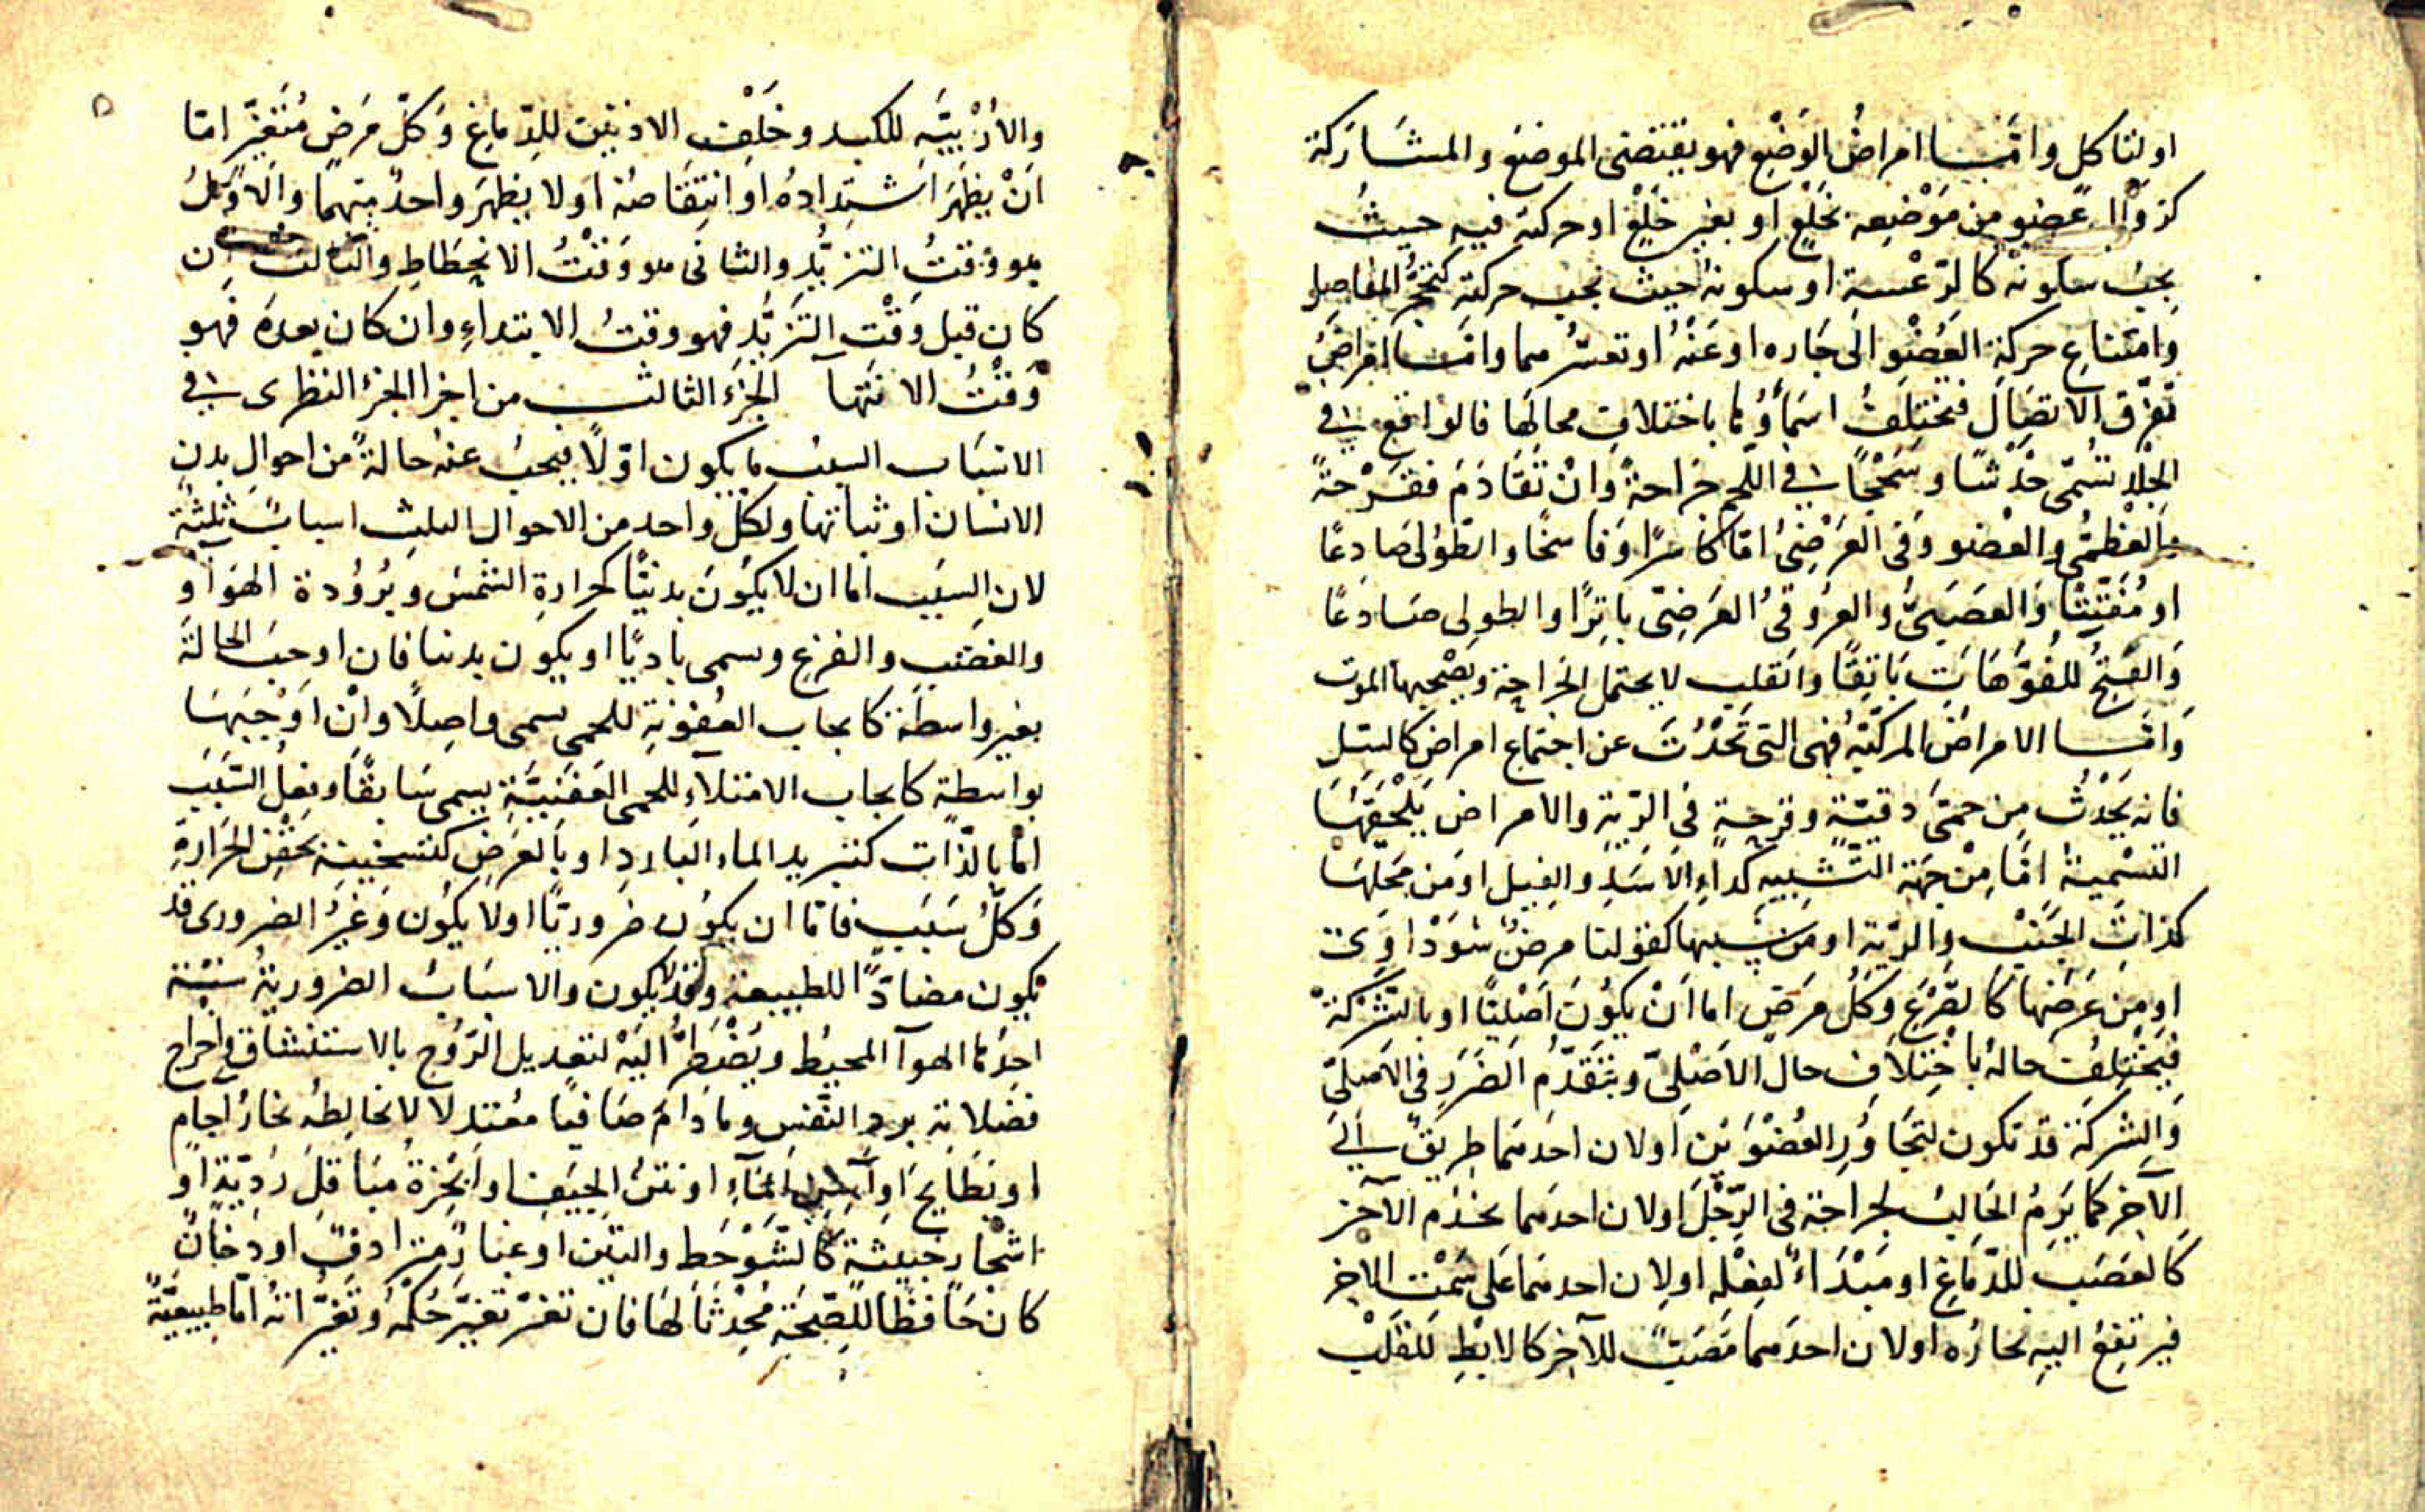 او لتاكل واما امراض الوَضْع فهو يقتضى الموضع والمشاركة
كزوال عضو من مَوْضِعه بخلع او بغير خلع او حركته فيه حيث
يجب سكونه كالرّعْشة او سكونه حيث يجب حركته كتحجُّر المفاصل
وامتناع حركة العُضْو الى جَاره او عَنْهُ او تعسّرهما واما امراض
تفرّق الاتصال فيختلف اسمَاؤُها باختلاف محالها فالواقع فى
الجلد تسمّى خَدْشًا وسَحْجًا وفى اللحم جراحةً وَانْ تَقَادَمَ فقَرْحَةً
والعظمى والعضو وفى العَرْضِىُّ امّا كاسرًا وَفاسخًا والطولى صَادِعًا
او مُفَتِّتًا وَالعَصَبىُّ والعروقىُ العَرضِىّ باتِرًا والطولى صَادعًا
وَالفتحُ للفُوَّهَاتِ بَاثِقًا والقلب لا يحتمل الجَراحة ويصْحبها الموت
وَامَّا الامراض المركّبَة فهى التى تَحْدُث عن اجتماع امراض كالسّل
فانه يَحْدُث مِن حمىّ دقيّة وقرحة فى الرّية والامراض يَلْحَقهَا
التسْميَة امَّا مِنْ جهَة التّشبيه كداءِ الاَسَد والفيل او مَن مَحَلّهَا
كذات الجَنْب والرّية او مَن سَببها كقولنا مرضٌ سَوْداوى
او مِن عَرَضها كالصَّرْع وكلُ مَرَض اما انْ يكوُنَ اَصْليّا او بالشركةْ
فيَخْتلف حاله باخْتِلاف حال الاَصْلىّ ويتقَدّمُ الضَرَر فى الاَصلىّ
وَالشركة قد تكون لتجَاوُر العُضْوَيْن اولان احَدهما طريقٌ الى
الآخر كما يَرِمُ الحَالِبُ لجراحة فى الرِّجْل اولان احدهما يخدم الآخر
كالعَصَب للدّماغ او مَبْدَاءٌ لفعْله اولان احدهما على سَمْت الاخر
فيرتفع اليه بخاره اولان احدهما مَصَبٌّ للآخر كالابط للقَلْب
والاُرْبيَّه للكبد وخَلْف الاذنَيْن للدّماغ وَكلّ مَرَض مُتَغيّر امّا
اَنْ يظهَرَ اشتدادهُ او انتِقاصهُ اولا يظهَرَ واحدٌ منهما والاوّلُ
هو وقتُ التزيُّد والثانى هو وَقْتُ الانحِطاطِ والثالث ان
كان قبل وَقْت التَزيُّد فهو وقتُ الابتداءِ وان كان بعدَهُ فهو
وَقْتُ الانتهآ الجُزءُ الثالث من اجزا الجزء النظرى فى
الاسبَاب السبب ما يكون اوّلًا فيجبُ عنهُ حالةٌ من احوال بدن
الانسان او ثباتها ولكل واحد من الاحوال الثلث اسبابٌ ثلثة
لان السبَب اما ان لا يكوُنَ بدنيًّا كحرارة الشمس وبُرُوُدة الهوَآ و
والغضب والفزع ويسمى باديًا او يكون بدنيا فان اوجبَ الحالةَ
بغير واسطة كايجاب العُفوُنة للحمى يسمى واصِلًا وانْ اوْجَبَهَا
بواسطة كايجاب الامتلآءِ للحمى العَفَنيَّة يسمى سَابقًا وفعلُ السّبَب
امّا بالذّات كتبريد الماء البارد او بالعرَض كتسخينه بحَقْن الحرارةِ
وَكلُّ سَبَب فامّا ان يكون ضروريّا اولا يكوُن وَغيرُ الضرورى قد
يكون مضادّا للطبيعة وقد لا يكون والاسبَابُ الضرورية ستّة
احدها الهوآ المحيط ويُضْطرُّ اليَهْ لتعديل الرّوُح بالاستنشاق واخراج
فضلاته برد النّفس وما دامَ صَافيًا معتدلا لا يخالطهُ بخارُ اجام
او بَطَايح او آسن المَآءِ او نتنُ الجِيَف او اَبْخِرَةُ مبَاقلَ رَديّة او
اشجار خبيثة كالشَوْحَط والتين او غبارٌ متزادفٌ او دخانٌ
كان حَافظا للصّحَة مُحْدثًا لهَا فان تغيّر تغيَّر حُكْمُهُ وتغيُّراتهُ امّا طبيعيّةٌ